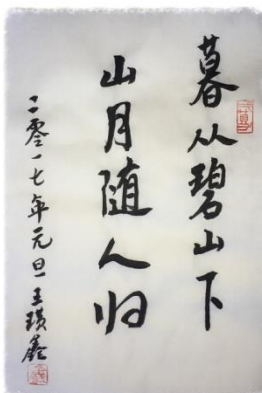 暮从碧山下
山月随人归
二零一七年元旦王璜鑫